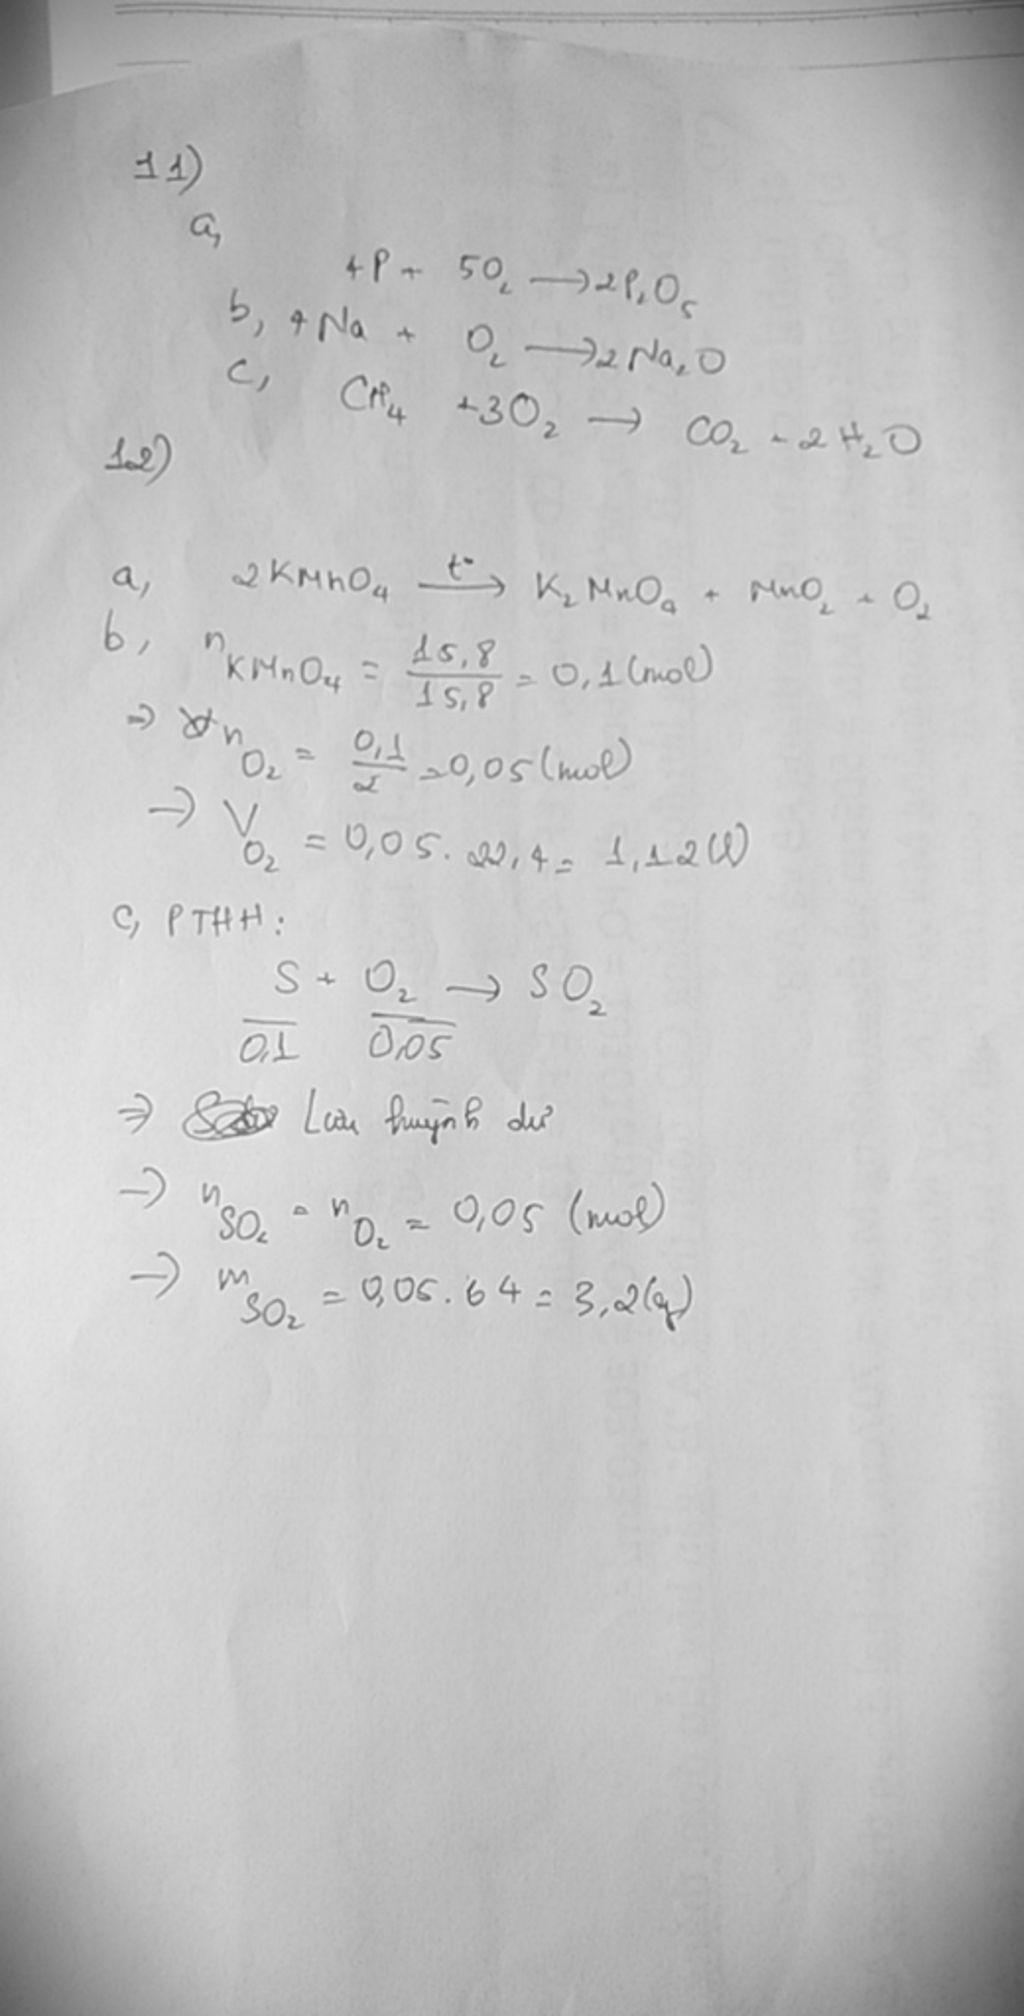 11)
a,
4P + 5O₂ → 2P₂O₅
b, 4Na + O₂ → 2Na₂O
c, CH₄ + 3O₂ → CO₂ + 2H₂O
12)
a, 2KMnO₄ t° → K₂MnO₄ + MnO₂ + O₂
b, n KMnO₄ = 15,8 / 15,8 = 0,1 (mol)
⇒ n O₂ = 0,1 / 2 = 0,05 (mol)
→ V O₂ = 0,05 . 22,4 = 1,12 (l)
c, PTHH:
S + O₂ → SO₂
0,1 0,05
⇒ Lưu huỳnh dư
→ n SO₂ = n O₂ = 0,05 (mol)
→ m SO₂ = 0,05 . 64 = 3,2 (g)